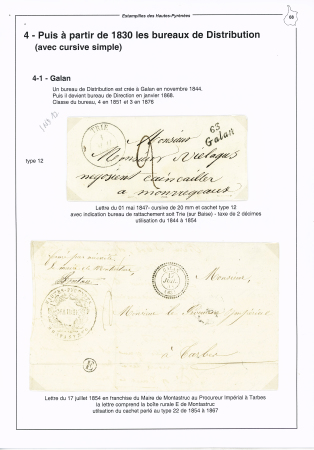 Estampilles des Hautes-Pyrénées
68
4 - Puis à partir de 1830 les bureaux de Distribution
(avec cursive simple)
4-1 - Galan
Un bureau de Distribution est crée à Galan en novembre 1844.
Puis il devient bureau de Direction en janvier 1868.
Classe du bureau, 4 en 1851 et 3 en 1876
type 12
TRIE
65
Galan
Monsieur
Monsieur
negocient
a
Lettre du 01 mai 1847- cursive de 20 mm et cachet type 12
avec indication bureau de rattachement soit Trie (sur Baise) - taxe de 2 décimes
utilisation du 1844 à 1854
Monsieur,
Monsieur le Impérial
Tarbes
E
Lettre du 17 juillet 1854 en franchise du Maire de Montastruc au Procureur Impérial à Tarbes
la lettre comprend la boîte rurale E de Montastruc
utlisation du cachet perlé au type 22 de 1854 à 1867